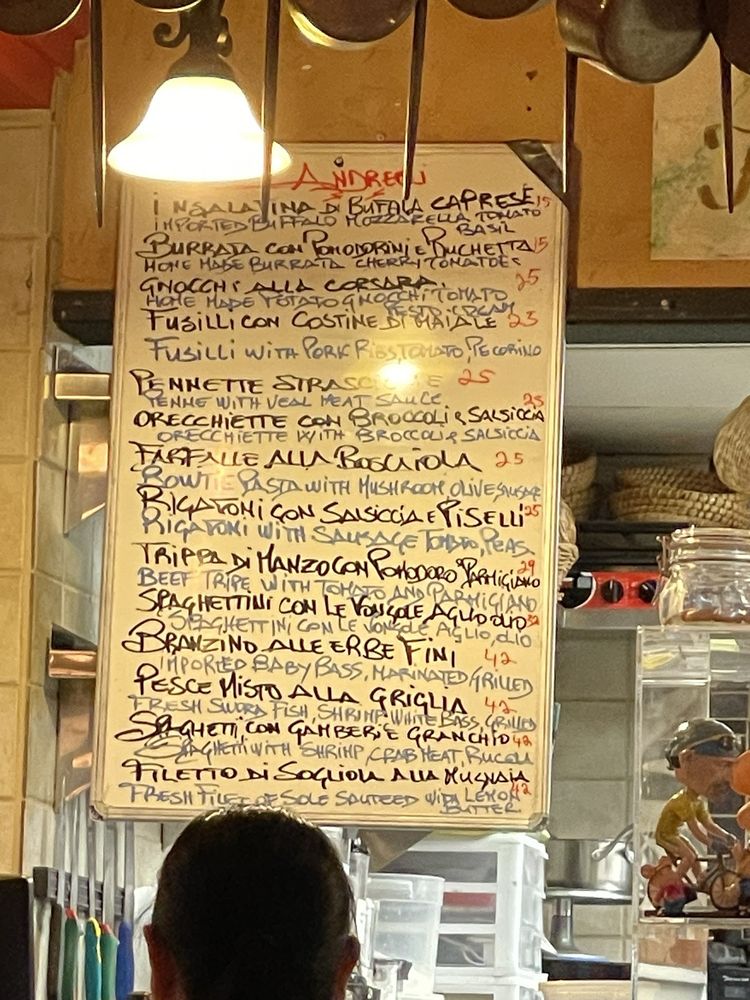 ANDREW
INSALATINA DI BUFALA CAPRESE 15
IMPORTED BUFFALO MOZZARELLA TOMATO
BASIL
BURRATA CON POMODORINI E RUCHETTA 15
HOME MADE BURRATA CHERRY TOMATOES
GNOCCHI ALLA CORSARA. 25
HOME MADE POTATO GNOCCHI TOMATO
PESTO, CREAM
FUSILLI CON COSTINE DI MAIALE 25
FUSILLI WITH PORK RIBS TOMATO, PECORINO
PENNETTE 25
PENNE WITH VEAL MEAT SAUCE
ORECCHIETTE CON BROCCOLI & SALSICCIA 25
ORECCHIETTE WITH BROCCOLI & SALSICCIA
FARFALLE ALLA BOSCAIOLA 25
BOWTIE PASTA WITH MUSHROOM, OLIVE, SAUSAGE
RIGATONI CON SALSICCIA E PISELLI 25
RIGATONI WITH SAUSAGE TOMATO, PEAS
TRIPPA DI MANZO CON POMODORO & PARMIGIANO 29
BEEF TRIPE WITH TOMATO AND PARMIGIANO
SPAGHETTINI CON LE VONGOLE AGLIO OLIO 32
SPAGHETTINI CON LE VONGOLE AGLIO, OLIO
BRANZINO ALLE ERBE FINI 42
IMPORTED BABY BASS, MARINATED GRILLED
PESCE MISTO ALLA GRIGLIA 42
FRESH SWORD FISH, SHRIMP, WHITE BASS, GRILLED
SPAGHETTI CON GAMBERI E GRANCHIO 42
SPAGHETTI WITH SHRIMP, CRAB MEAT, RUCOLA
FILETTO DI SOGLIOLA ALLA MUGNAIA 42
FRESH FILET OF SOLE SAUTEED WITH LEMON
BUTTER